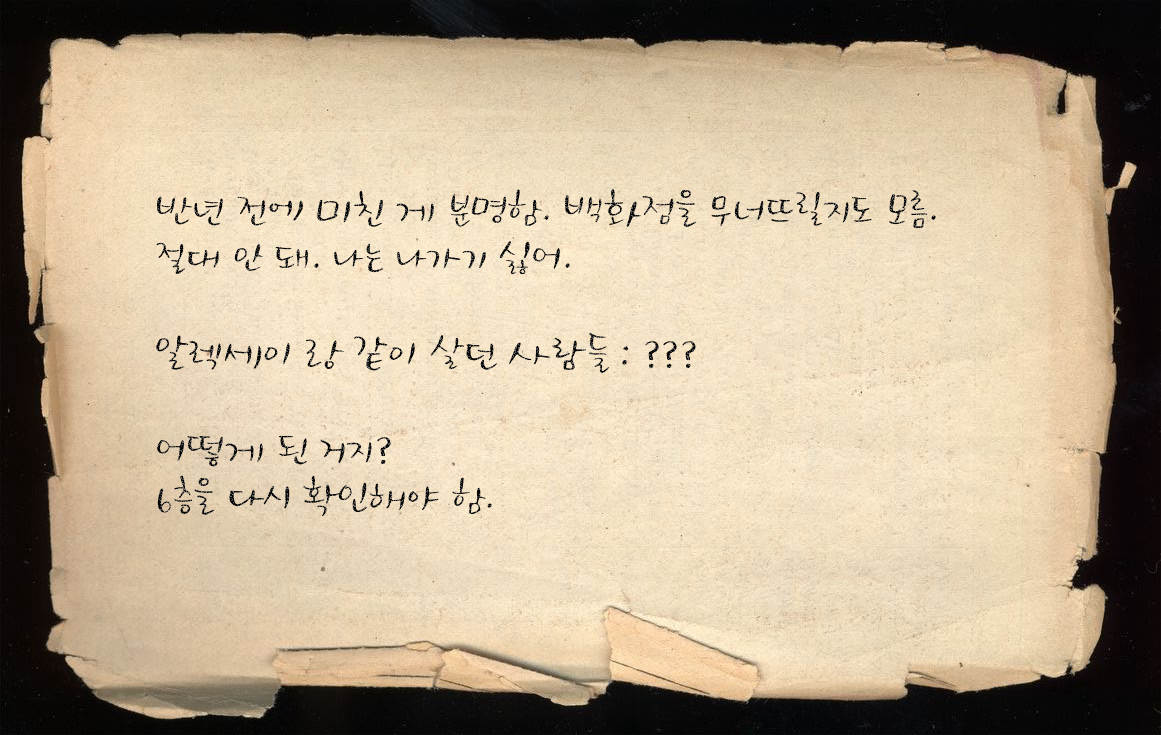 반년 전에 미친 게 분명함. 백화점을 무너뜨릴지도 모름.
절대 안 돼. 나는 나가기 싫어.
알렉세이 랑 같이 살던 사람들 : ???
어떻게 된 거지?
6층을 다시 확인해야 함.